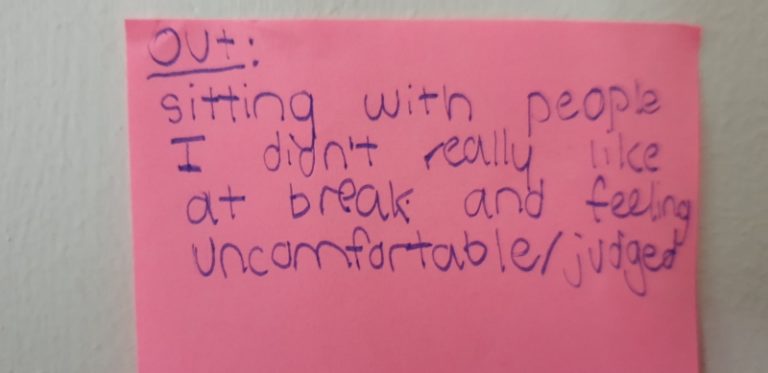 OUt:
sitting with people
I didn't really like
at break and feeling
uncomfortable/judged